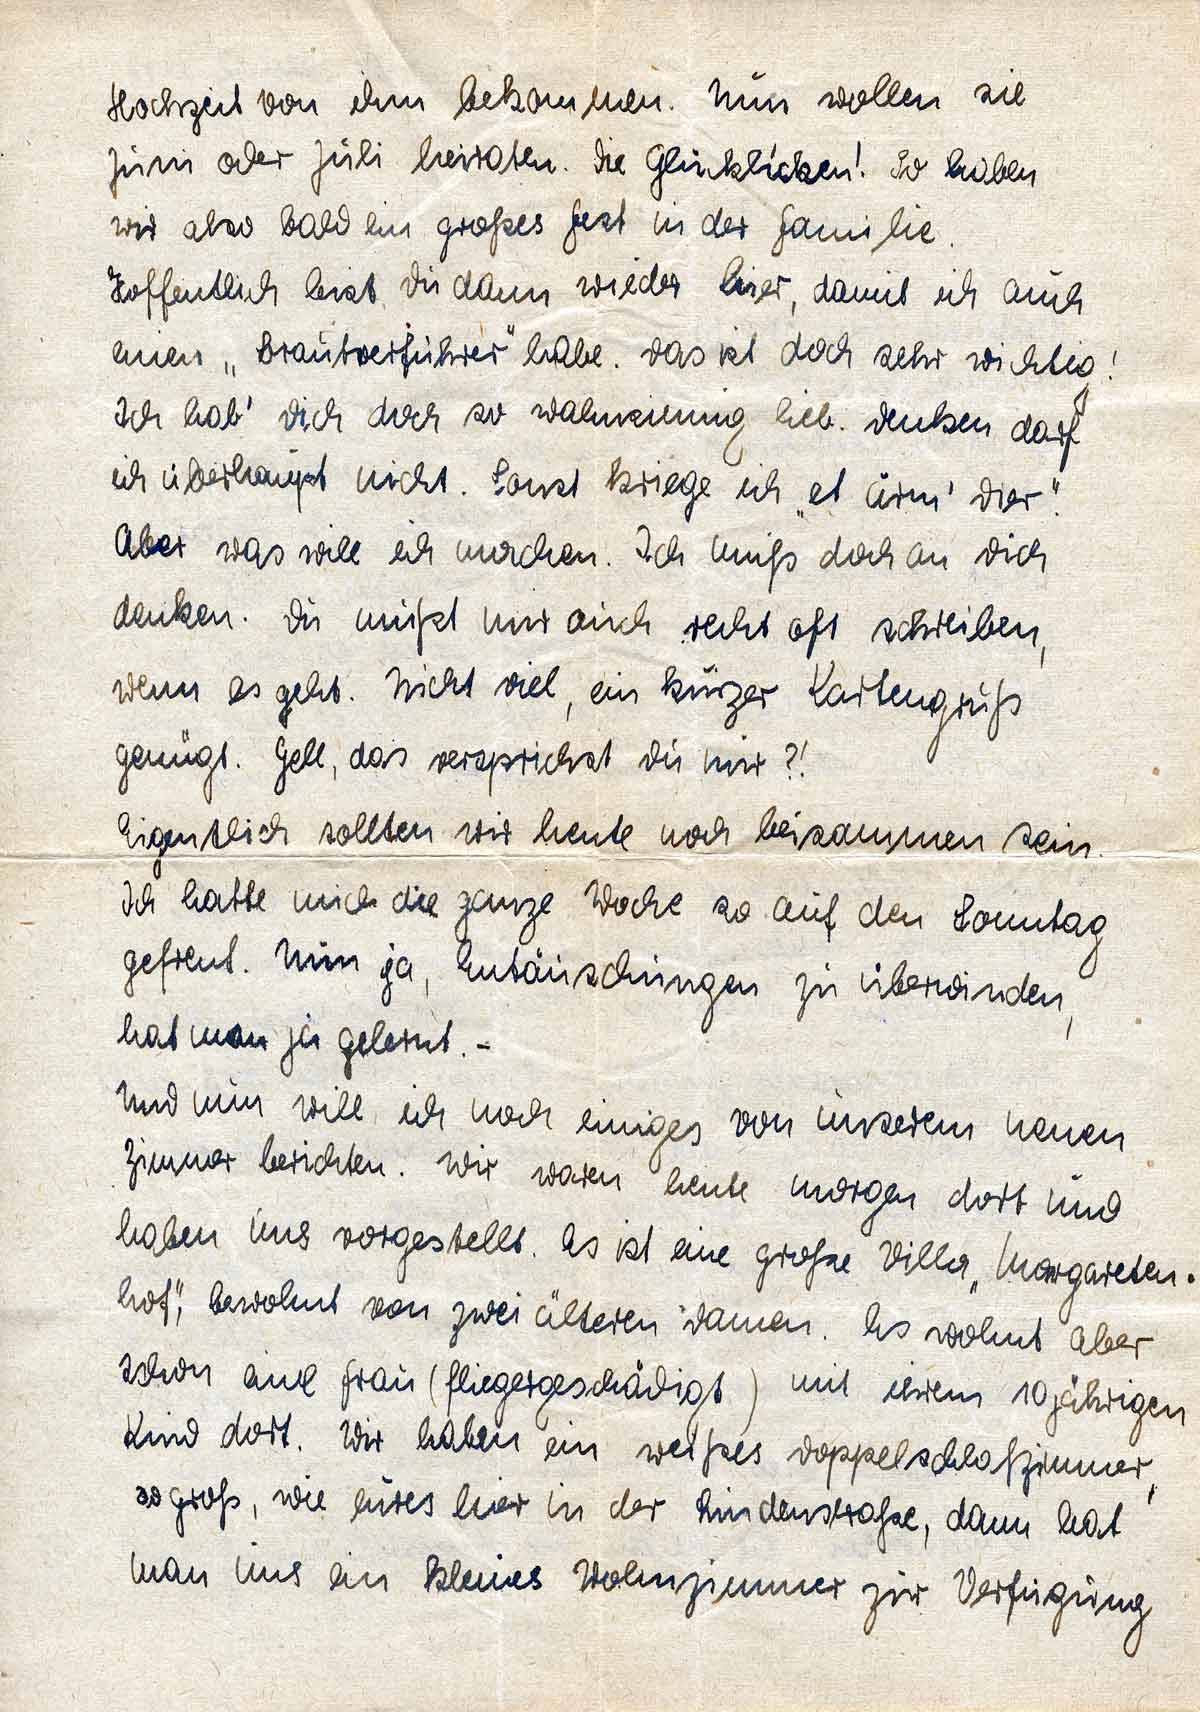 Hochzeit von ihm bekommen. Nun wollen sie
Juni oder Juli heiraten. Die Glücklichen! So haben
wir also bald ein großes Fest in der Familie.
Hoffentlich bist Du dann wieder hier, damit ich auch
einen „Brautverführer" habe. Das ist doch sehr wichtig!
Ich hab' Dich doch so wahnsinnig lieb. Denken darf
ich überhaupt nicht. Sonst kriege ich „et ärm' Dier".
Aber was will ich machen. Ich muß doch an Dich
denken. Du mußt mir auch recht oft schreiben,
wenn es geht. Nicht viel, ein kurzer Kartengruß
genügt. Gell, das versprichst Du mir?!
Eigentlich sollten wir heute noch beisammen sein.
Ich hatte mich die ganze Woche so auf den Sonntag
gefreut. Nun ja, Entäuschungen zu überwinden,
hat man ja gelernt. –
Und nun will ich noch einiges von unserem neuen
Zimmer berichten. Wir waren heute morgen dort und
haben uns vorgestellt. Es ist eine große Villa „Margareten-
hof", bewohnt von zwei älteren Damen. Es wohnt aber
schon eine Frau (fliegergeschädigt) mit ihrem 10jährigen
Kind dort. Wir haben ein weißes Doppelschlafzimmer,
so groß, wie eures hier in der Lindenstraße, dann hat
man uns ein kleines Wohnzimmer zur Verfügung